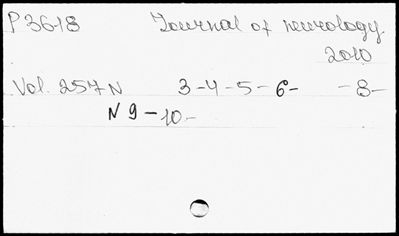 P3618 Journal of neurology
2010
Vol. 257 N 3-4-5-6- -8-
N 9-10-